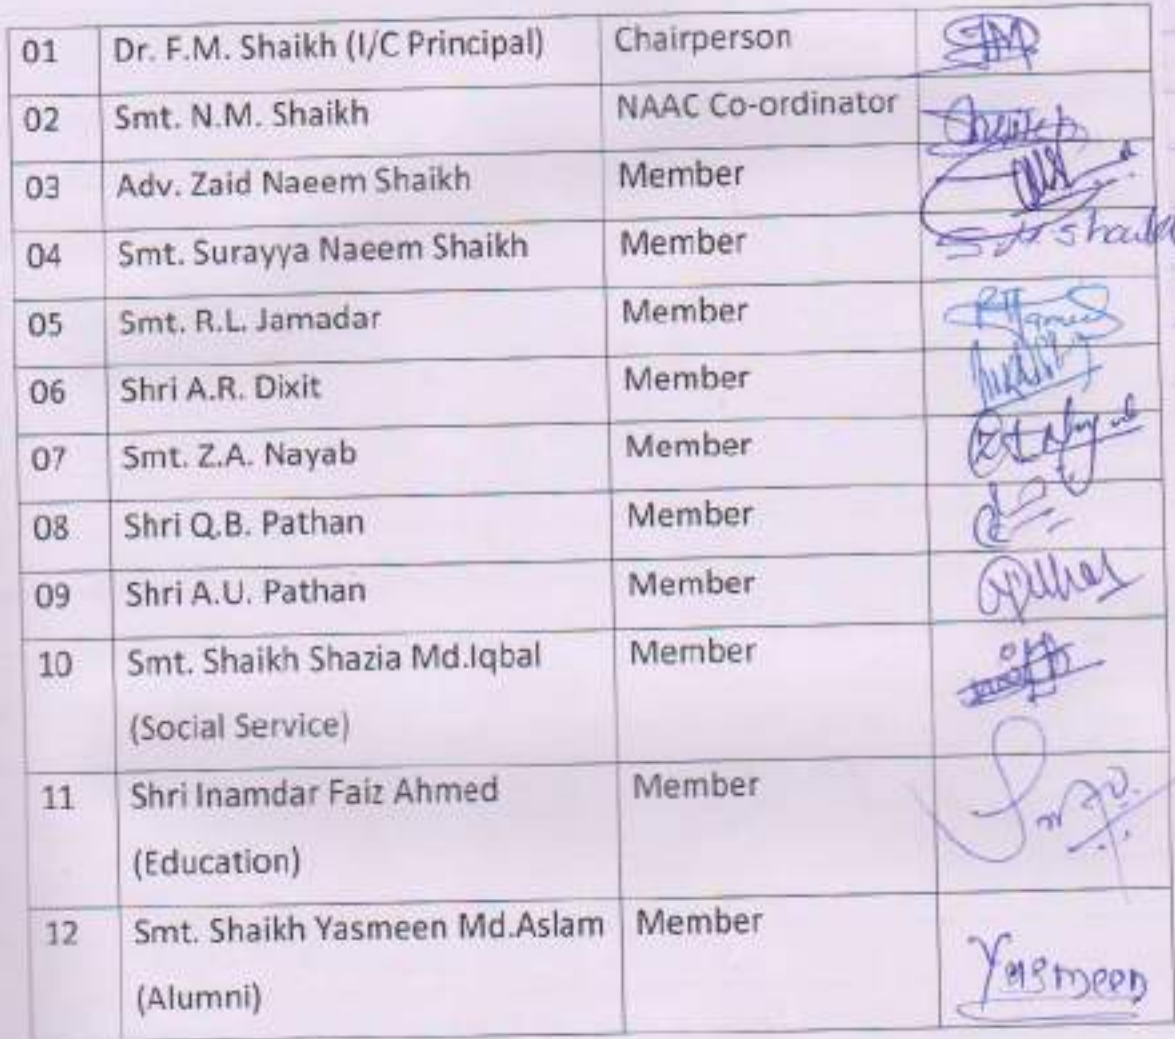 01 Dr. F.M. Shaikh (I/C Principal) Chairperson
02 Smt. N.M. Shaikh NAAC Co-ordinator
03 Adv. Zaid Naeem Shaikh Member
04 Smt. Surayya Naeem Shaikh Member
05 Smt. R.L. Jamadar Member
06 Shri A.R. Dixit Member
07 Smt. Z.A. Nayab Member
08 Shri Q.B. Pathan Member
09 Shri A.U. Pathan Member
10 Smt. Shaikh Shazia Md.Iqbal Member
(Social Service)
11 Shri Inamdar Faiz Ahmed Member
(Education)
12 Smt. Shaikh Yasmeen Md.Aslam Member
(Alumni) Yasmeen